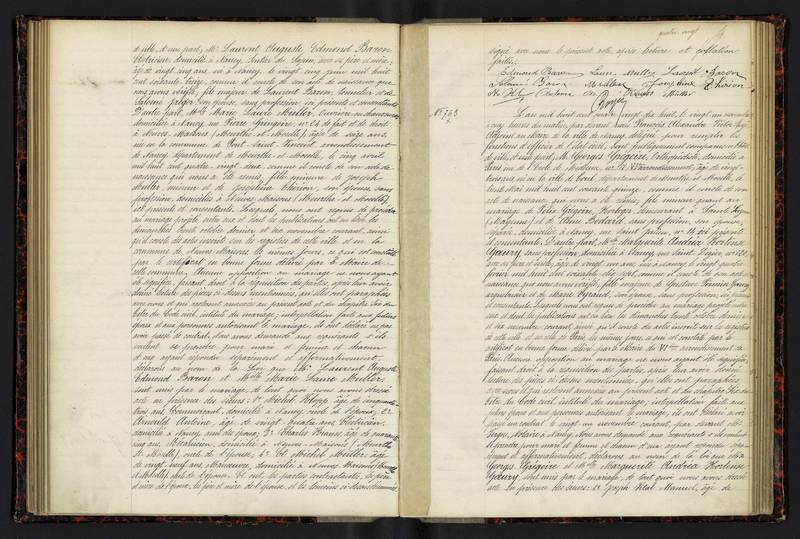 de fille, d'une part, Mr Laurent Auguste Edmond Baron,
domicilié à Nancy, de Turpin, avec ses père et mère,
âgé de vingt cinq ans, né à Nancy, le vingt cinq juin mil huit
cent soixante treize, comme il conste de son acte de naissance que
nous avons vérifié, fils majeur de Laurent Baron, tonnelier, et de
Salomé son épouse, sans profession, ici présents et consentants.
D'autre part, Mlle Marie Laure Muller,
domiciliée à Nancy, rue Pierre Gringoire, no 24 de fait et de droit
à Neuves-Maisons (Meurthe-et-Moselle), âgée de seize ans,
née en la commune de Pont Saint Vincent, arrondissement
de Nancy, département de Meurthe-et-Moselle, le cinq avril
mil huit cent quatre-vingt deux, comme il conste de son acte de
naissance qui nous a été remis, fille mineure de Joseph
Muller, mineur, et de Joséphine Thirion, son épouse, sans
profession, domiciliés à Neuves-Maisons (Meurthe-et-Moselle),
ici présents et consentants. Lesquels nous ont requis de procéder
au mariage projeté entre eux et dont les publications ont eu lieu les
dimanches trente octobre dernier et six novembre courant, ainsi
qu'il conste des actes inscrits sur les registres de cette ville et en la
commune de Neuves-Maisons les mêmes jours, ce qui est constaté
par le certificat en bonne forme délivré par le Maire de
cette commune; Aucune opposition au mariage ne nous ayant
été signifiée, faisant droit à la réquisition des parties, après leur avoir
donné lecture des pièces ci-dessus mentionnées, qui elles sont paraphées
avec nous et qui resteront annexées au présent acte et du chapitre six du
titre du Code civil, intitulé du mariage; interpellation faite aux futurs
époux et aux personnes autorisant le mariage, ils ont déclaré ne pas
avoir passé de contrat. Avons demandé aux requérants s'ils
veulent se prendre pour mari et femme et chacun
d'eux ayant répondu séparément et affirmativement,
déclarons au nom de la Loi que Mr Laurent Auguste
Edmond Baron et Mlle Marie Laure Muller
sont unis par le mariage, de tout quoi nous avons dressé
acte en présence des sieurs: 1o Michel Klopp, âgé de cinquante
trois ans, Commerçant, domicilié à Nancy, oncle de l'époux; 2o
Arnould Antoine, âgé de vingt-quatre ans,
domicilié à Nancy, ami des époux; 3o Charles âgé de quarante
cinq ans, domicilié à Neuves-Maisons (Meurthe
et Moselle), oncle de l'épouse; 4o Et Michel Muller, âgé
de vingt-neuf ans, Manœuvre, domicilié à Neuves-Maisons (Meurthe
et Moselle), oncle de l'épouse. Et ont, les parties contractantes, les père
et mère de l'époux, les père et mère de l'épouse, et les témoins ci-dessus dénommés,
quatre vingt
signé avec nous le présent acte, après lecture et collation
faites.
Edmond Baron Laure Muller Laurent Baron
Salomé Baron Muller Joséphine Thirion
Antoine Muller
No 763
L'an mil huit cent quatre vingt dix huit, le vingt un novembre
à cinq heures du matin, par devant nous François Alexandre
Adjoint au Maire de la ville de Nancy, délégué pour remplir les
fonctions d'officier de l'état civil, sont publiquement comparus en l'hôtel
de ville, d'une part, Mr Georges Grégoire, Orthopédiste, domicilié à
Paris, rue de l'École de Médecine, âgé de vingt
trois ans, né en la ville de Toul, département de Meurthe et Moselle, le
mil huit cent soixante quinze, comme il conste de son
acte de naissance qui nous a été remis, fils mineur avant au
mariage de Félix Grégoire, Horloger, demeurant à
(Mayenne), et de sans profession, son épouse
séparée, domiciliée à Nancy, rue Saint Julien, no 14, ici présente
et consentante. D'autre part, Mlle Marguerite Andréa Hortense
Gaury, sans profession, domiciliée à Nancy, rue Saint Dizier, no 120
avec ses père et mère, âgée de vingt un ans, née à Nancy, le vingt
février mil huit cent soixante dix sept, comme il conste de son acte de
naissance que nous avons vérifié, fille majeure de Gustave Firmin Gaury,
et de Marie son épouse, sans profession, ici présents
et consentants. Lesquels nous ont requis de procéder au mariage projeté entre
eux et dont les publications ont eu lieu les dimanches trente octobre dernier
et six novembre courant, ainsi qu'il conste des actes inscrits sur les registres
de cette ville et en celle de Paris, les mêmes jours, ce qui est constaté par le
certificat en bonne forme délivré par le Maire du VIème arrondissement de
Paris. Aucune opposition au mariage ne nous ayant été signifiée,
faisant droit à la réquisition des parties, après leur avoir donné
lecture des pièces ci-dessus mentionnées, qui elles sont paraphées
avec nous et qui resteront annexées au présent acte et du chapitre six du
titre du Code civil, intitulé du mariage; interpellation faite aux
futurs époux et aux personnes autorisant le mariage, ils ont déclaré avoir
passé un contrat le vingt un novembre courant, par devant Me
Notaire à Nancy. Nous avons demandé aux requérants s'ils veulent
se prendre pour mari et femme et chacun d'eux ayant répondu séparé-
ment et affirmativement, déclarons au nom de la Loi que Mr
Georges Grégoire et Mlle Marguerite Andréa Hortense
Gaury, sont unis par le mariage, de tout quoi nous avons dressé
acte en présence des sieurs: 1o Joseph Vital Manuel, âgé de